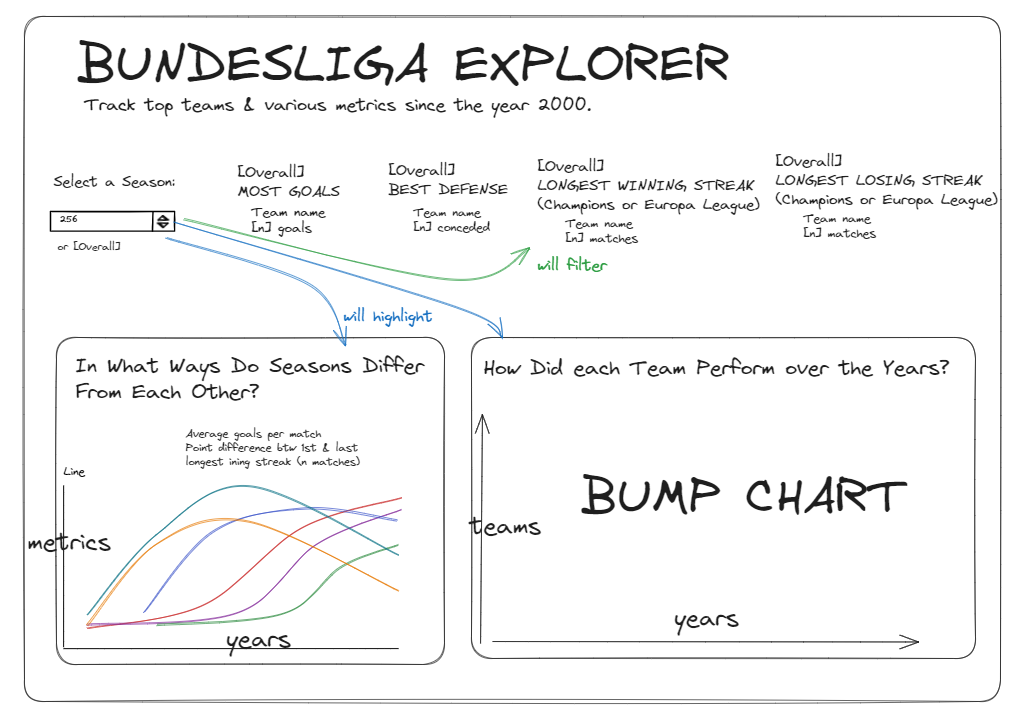 BUNDESLIGA EXPLORER
Track top teams & various metrics since the year 2000.
Select a Season:
256
or [Overall]
[Overall]
MOST GOALS
Team name
[n] goals
[Overall]
BEST DEFENSE
Team name
[n] conceded
[Overall]
LONGEST WINNING STREAK
(Champions or Europa League)
Team name
[n] matches
[Overall]
LONGEST LOSING STREAK
(Champions or Europa League)
Team name
[n] matches
will filter
will highlight
In What Ways Do Seasons Differ
From Each Other?
Average goals per match
Point difference btw 1st & last
longest ining streak (n matches)
Line
metrics
years
How Did each Team Perform over the Years?
BUMP CHART
teams
years